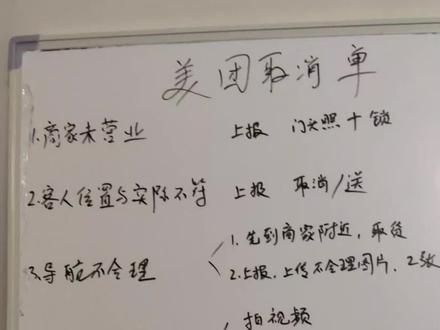 美团取消单
1.商家未营业 上报 门头照+锁
2.客人位置与实际不符 上报 取消/送
1.先到商家附近，取货
3.导航不合理
2.上报，上传不合理图片，2张
拍视频